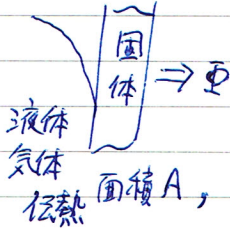 固体
⇒ Φ
液体
気体
伝熱 面積 A,